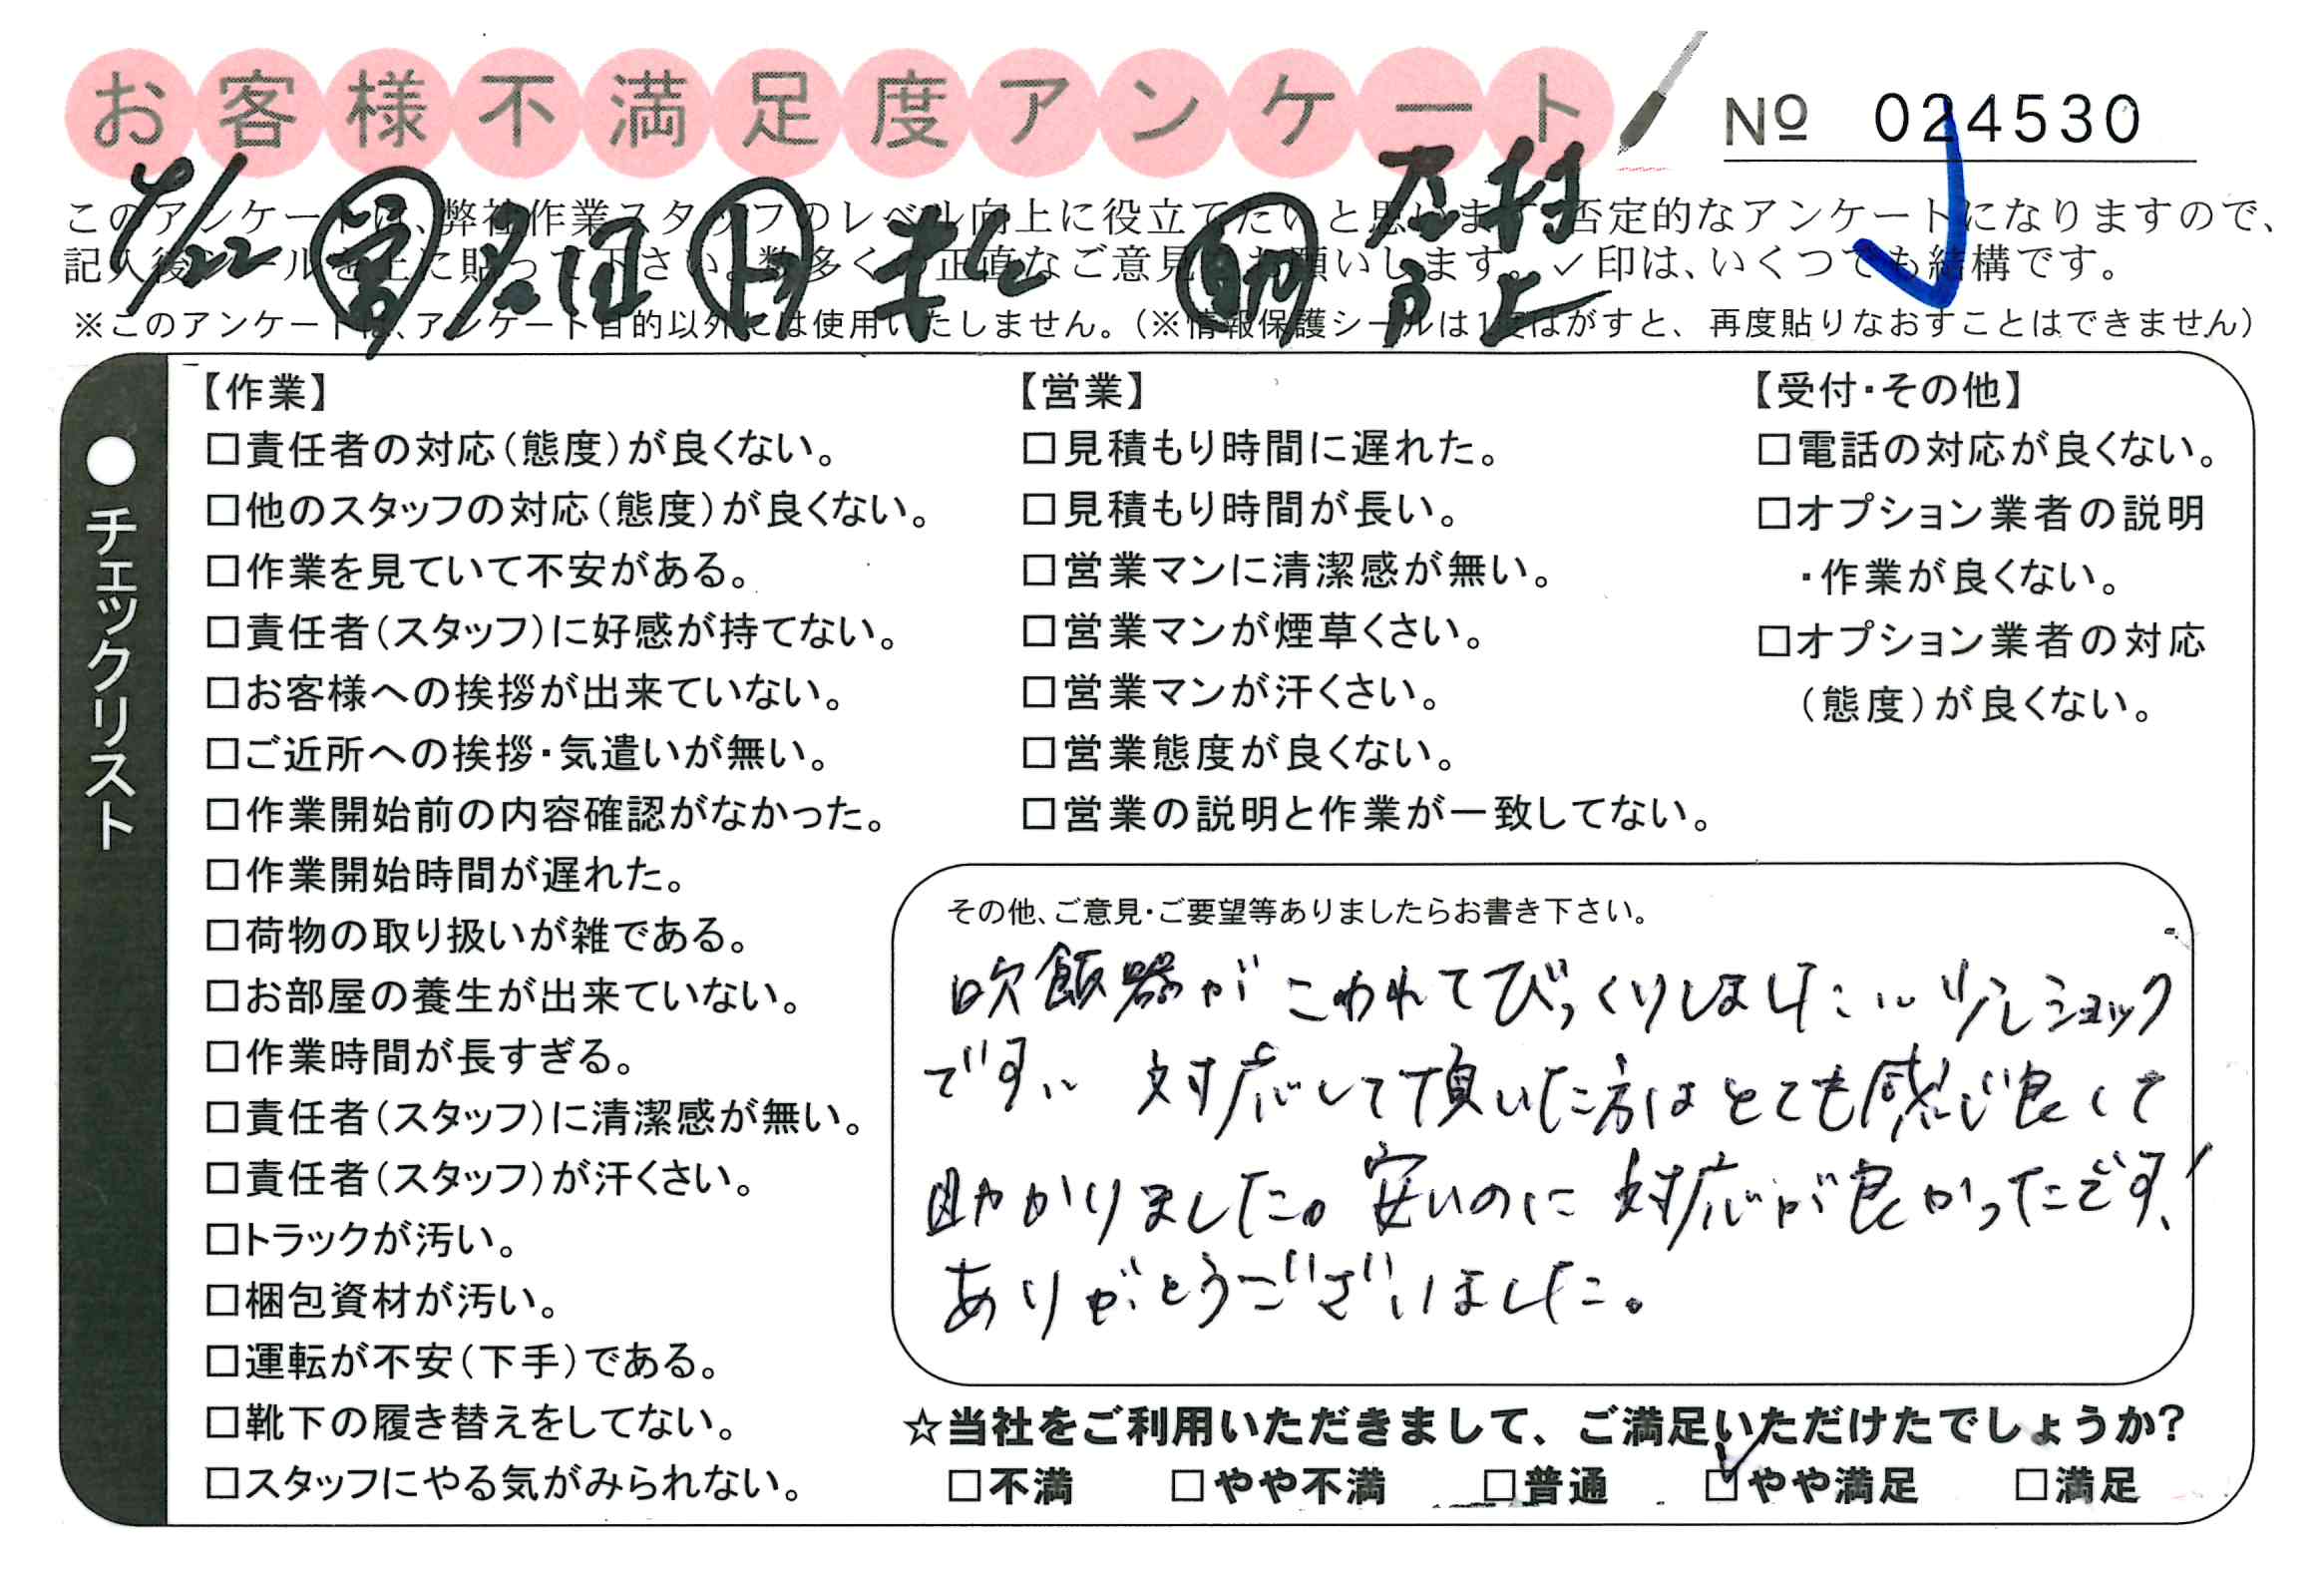 お客様不満足度アンケート
No 024530
4/22 営 多田 ト 末松 助 石村 井上
このアンケートは、弊社作業スタッフのレベル向上に役立てたいと思います。否定的なアンケートになりますので、
記入後シールを上に貼って下さい。数多くの正直なご意見をお願いします。✓印は、いくつでも結構です。
※このアンケートは、アンケート目的以外には使用いたしません。(※情報保護シールは1度はがすと、再度貼りなおすことはできません)
●チェックリスト
【作業】
□責任者の対応(態度)が良くない。
□他のスタッフの対応(態度)が良くない。
□作業を見ていて不安がある。
□責任者(スタッフ)に好感が持てない。
□お客様への挨拶が出来ていない。
□ご近所への挨拶・気遣いが無い。
□作業開始前の内容確認がなかった。
□作業開始時間が遅れた。
□荷物の取り扱いが雑である。
□お部屋の養生が出来ていない。
□作業時間が長すぎる。
□責任者(スタッフ)に清潔感が無い。
□責任者(スタッフ)が汗くさい。
□トラックが汚い。
□梱包資材が汚い。
□運転が不安(下手)である。
□靴下の履き替えをしてない。
□スタッフにやる気がみられない。
【営業】
□見積もり時間に遅れた。
□見積もり時間が長い。
□営業マンに清潔感が無い。
□営業マンが煙草くさい。
□営業マンが汗くさい。
□営業態度が良くない。
□営業の説明と作業が一致してない。
【受付・その他】
□電話の対応が良くない。
□オプション業者の説明
・作業が良くない。
□オプション業者の対応
(態度)が良くない。
その他、ご意見・ご要望等ありましたらお書き下さい。
吹飯器がこわれてびっくりしました… 少しショック
です… 対応して頂いた方はとても感じ良くて
助かりました。安いのに対応が良かったです!
ありがとうございました。
☆当社をご利用いただきまして、ご満足いただけたでしょうか?
□不満 □やや不満 □普通 ☑やや満足 □満足